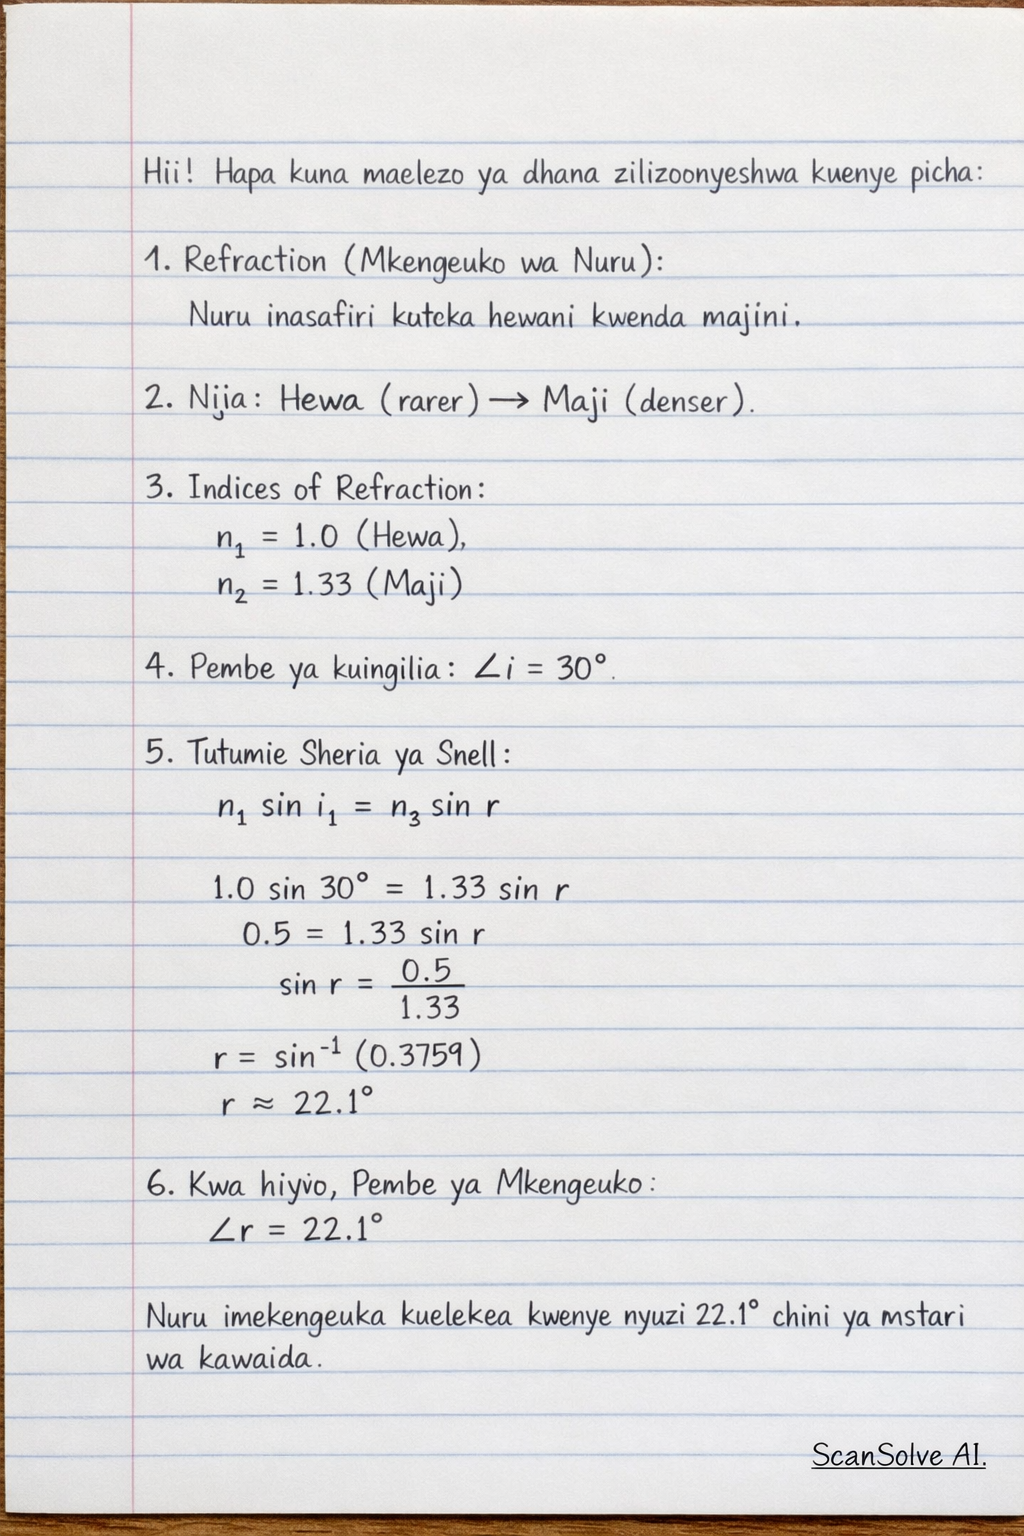 Hii! Hapa kuna maelezo ya dhana zilizoonyeshwa kuenye picha:
1. Refraction (Mkengeuko wa Nuru):
Nuru inasafiri kutcka hewani kwenda majini.
2. Nijia: Hewa (rarer) → Maji (denser).
3. Indices of Refraction:
n₁ = 1.0 (Hewa),
n₂ = 1.33 (Maji)
4. Pembe ya kuingilia: ∠i = 30°.
5. Tutumie Sheria ya Snell:
n₁ sin i₁ = n₃ sin r
1.0 sin 30° = 1.33 sin r
0.5 = 1.33 sin r
sin r = 0.5/1.33
r = sin⁻¹ (0.3759)
r ≈ 22.1°
6. Kwa hiyvo, Pembe ya Mkengeuko:
∠r = 22.1°
Nuru imekengeuka kuelekea kwenye nyuzi 22.1° chini ya mstari
wa kawaida.
ScanSolve AI.